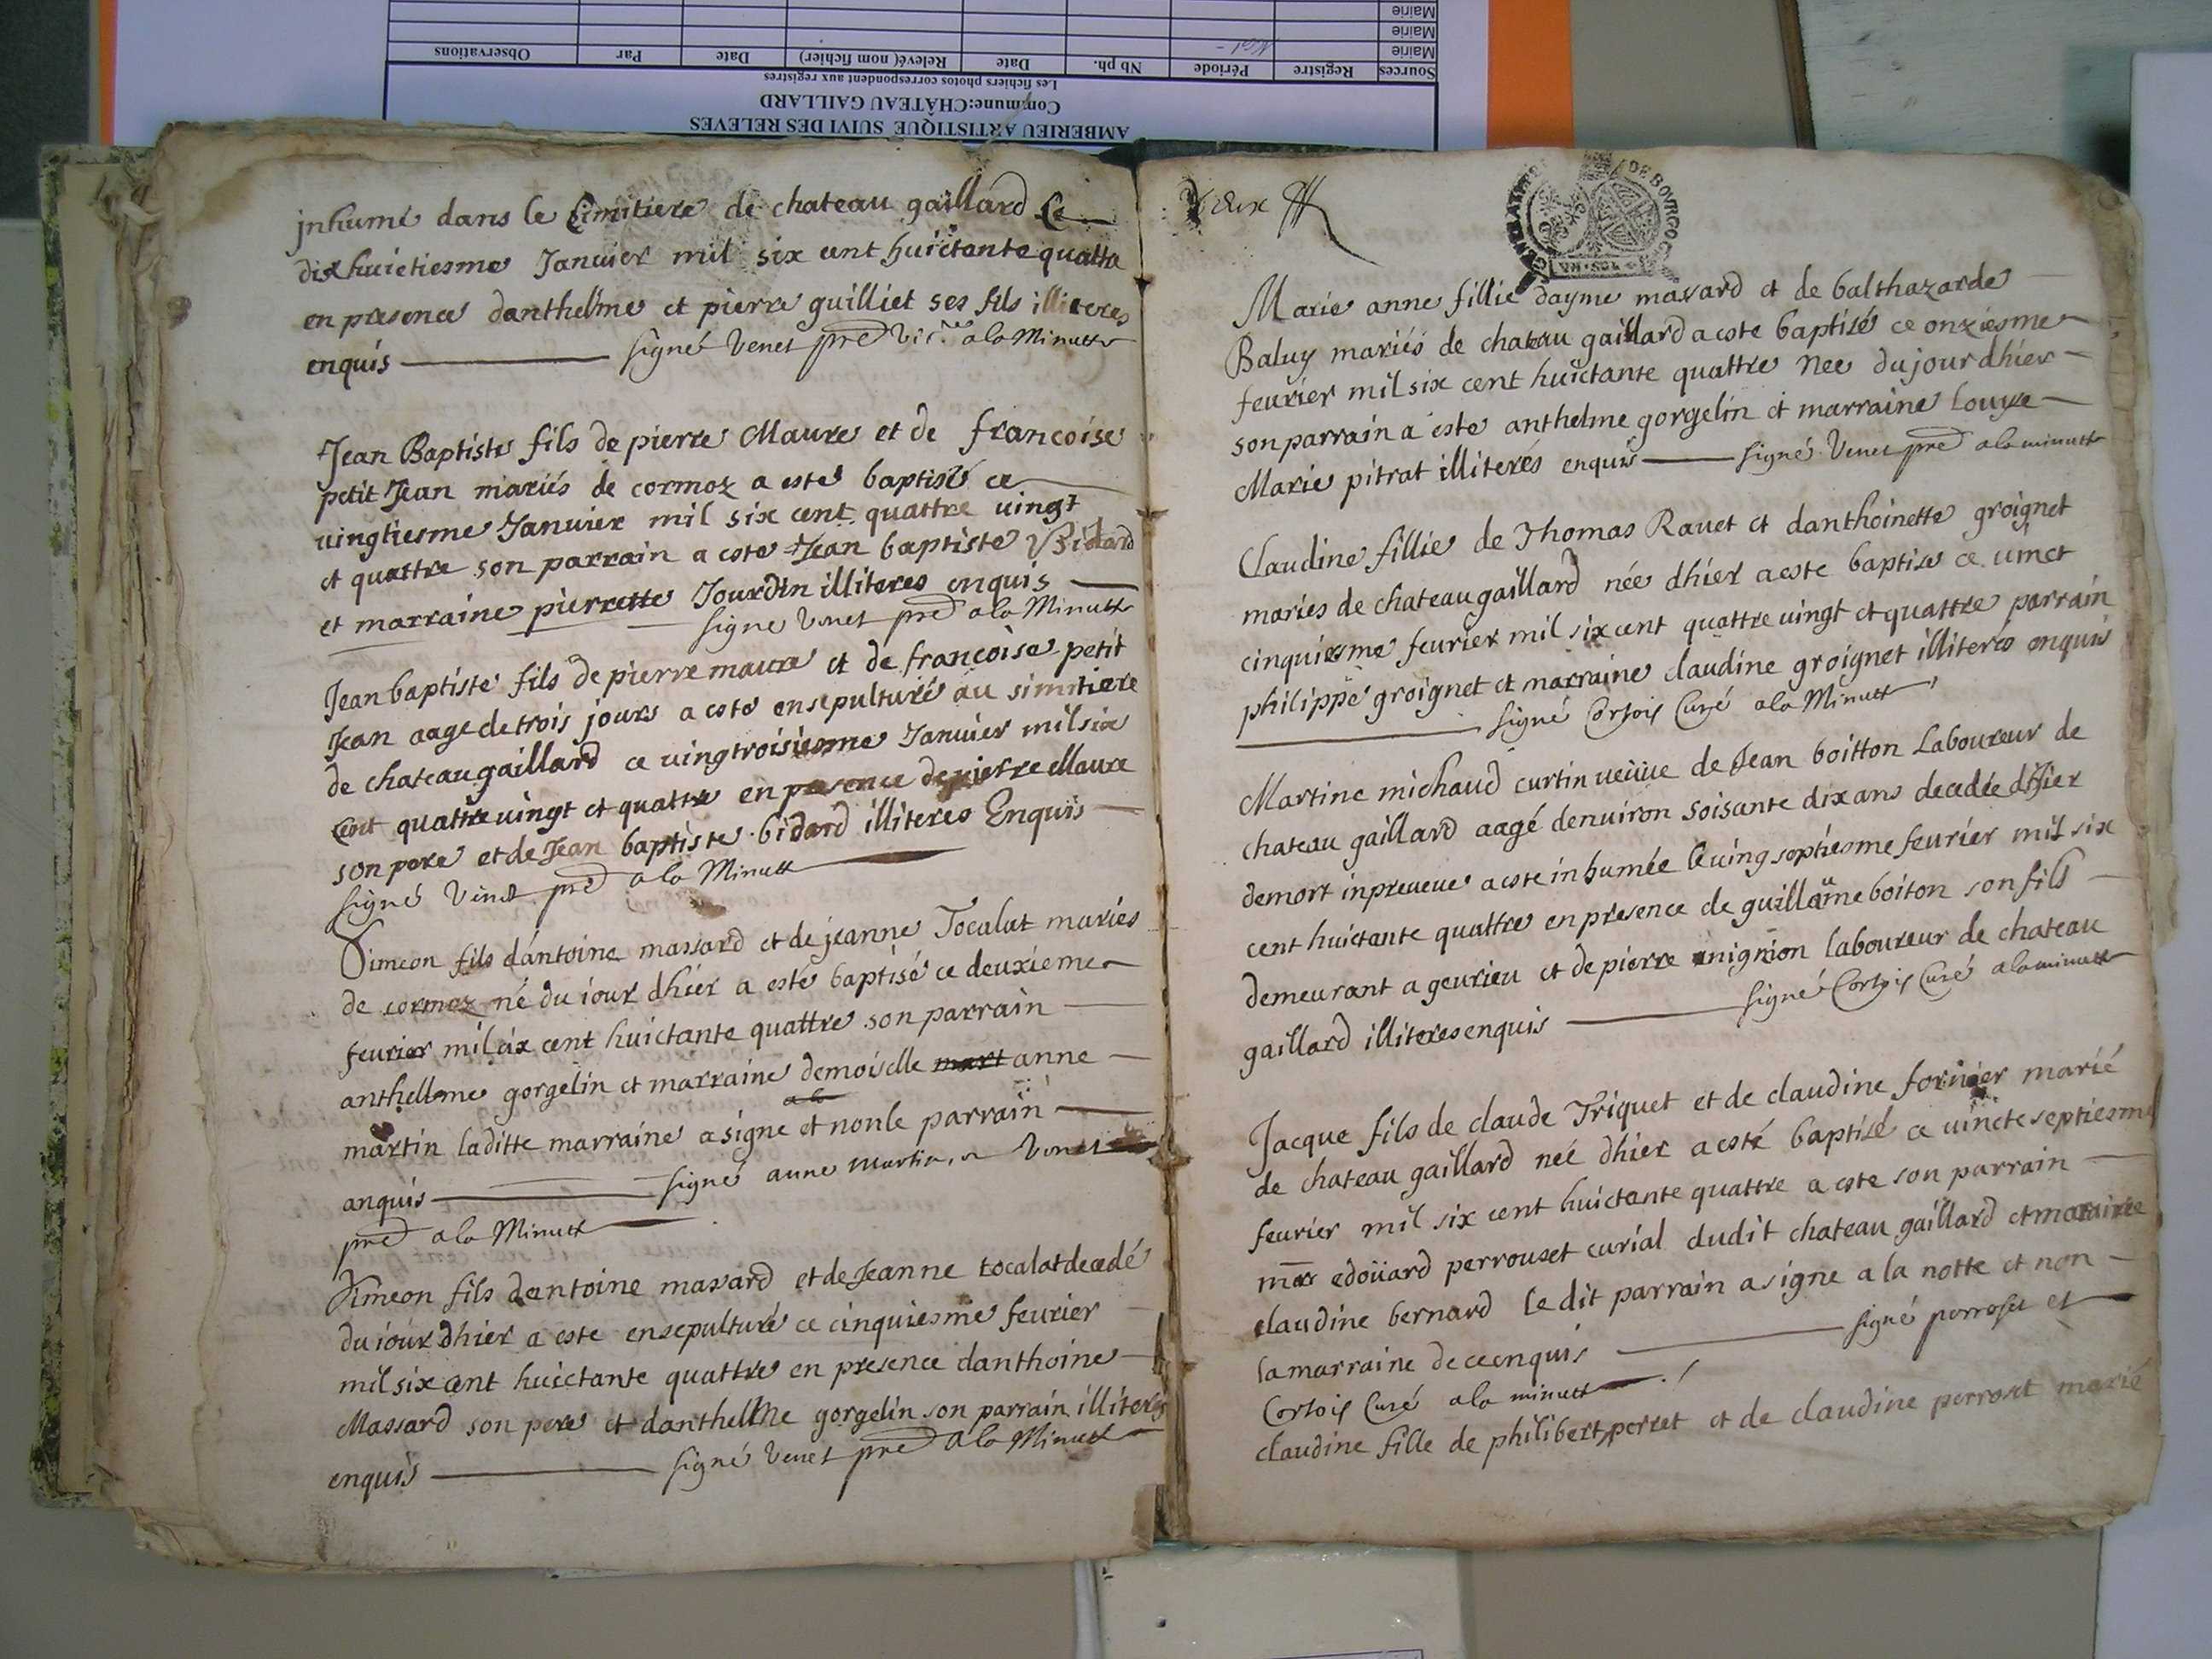 AMBERIEU ARTISTIQUE SUIVI DES RELEVES
Commune:CHÂTEAU GAILLARD
Les fichiers photos correspondent aux registres
Sources Registre Période Nb ph. Date Relevé( nom fichier) Date Par Observations
Mairie
Mairie
Mairie
jnhumé dans le Cimitiere de chateau gaillard Ce
dixhuictiesme Januier mil six cent huictante quattre
en presence danthelme et pierre guilliet ses fils illiteres
enquis signé Venet pre vic.re a la Minutte
Jean Baptiste fils de pierre Maure et de francoise
petit Jean mariés de cormoz a esté baptisé ce
uingtiesme Januier mil six cent quattre uingt
et quattre son parrain a este Jean baptiste Bidard
et marraine pierrette Jourdin illiteres enquis
signe Venet pre a la Minutte
Jean baptiste fils de pierre maure et de francoise petit
Jean aage de trois jours a este ensepulturé au simitiere
de chateau gaillard ce uingtroisiesme Januier mil six
cent quattre uingt et quattre en presence de pierre Maure
son pere et de Jean baptiste bidard illiteres Enquis
signé Venet pre a la Minutte
Simeon fils dantoine massard et de jeanne Tocalat mariés
de cormoz né du iour dhier a esté baptisé ce deuxieme
feurier mil six cent huictante quattre son parrain
anthellme gorgelin et marraine demoiselle mart anne
martin laditte marraine a signe et non le parrain
anquis signé anne martin, et Venet
pre a la Minutte
Simeon fils dantoine massard et de Jeanne tocalat decedé
du iour dhier a este ensepulturé ce cinquiesme feurier
mil six cent huictante quattre en presence danthoine
Massard son pere et danthellme gorgelin son parrain illiterés
enquis signé Venet pre a la Minutte
deux
GENERALITE DE BOVRGOG
Marie anne fillie dayme massard et de balthazarde
Baluy mariés de chateau gaillard a este baptisé ce onziesme
feurier mil six cent huictante quattre Nee du jour dhier
son parrain a este anthelme gorgelin et marraine Louyse
Marie pitrat illiterés enquis signé Venet pre a la minutte
Claudine fillie de Thomas Rauet et danthoinette groignet
mariés de chateau gaillard née dhier a este baptise ce uinct
cinquiesme feurier mil six cent quattre uingt et quattre parrain
philippe groignet et marraine claudine groignet illiteres enquis
signé Cortois Curé a la Minutte
Martine michaud curtin ueüue de Jean boitton Laboureur de
chateau gaillard aagé denuiron soisante dix ans decedée dhier
de mort inpreueue a este inhumée le uing septiesme feurier mil six
cent huictante quattre en presence de guillaüme boiton son fils
demeurant a geurieu et de pierre mignion laboureur de chateau
gaillard illiteres enquis signé Cortois Curé a la minutte
Jacque fils de claude Triquet et de claudine fornier marié
de chateau gaillard neé dhier a esté baptisé ce uincte septiesme
feurier mil six cent huictante quattre a este son parrain
edoüard perrouset curial dudit chateau gaillard et maraine
claudine bernard le dit parrain a signe a la notte et non
la marraine de ce enquis signé perroset et
Cortois Curé a la minutte
claudine fille de philibert perret et de claudine perroset marié